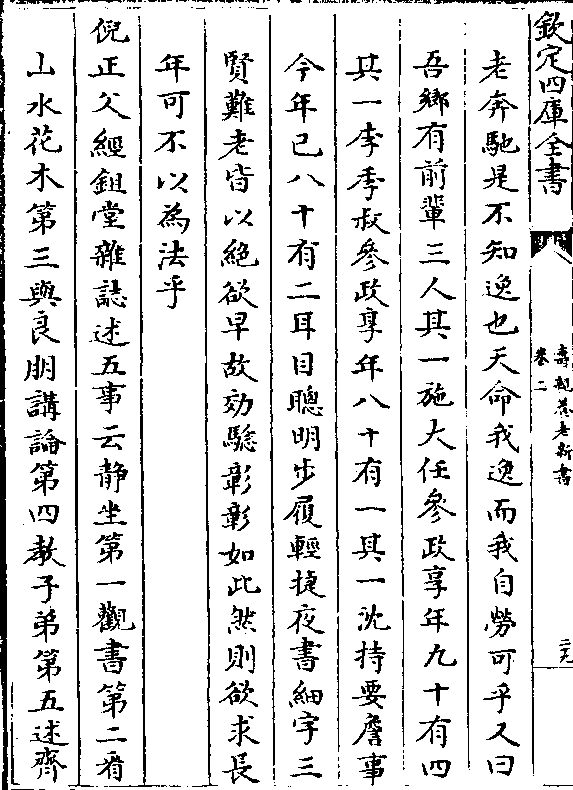 欽定四庫全書
壽親養老新書
卷二
二九
老奔馳是不知逸也天命我逸而我自勞可乎又曰
吾鄉有前輩三人其一施大任參政享年九十有四
其一李季叔參政享年八十有一其一沈持要詹事
今年已八十有二耳目聰明步履輕捷夜書細字三
賢難老皆以絶欲早故効驗彰彰如此然則欲求長
年可不以為法乎
倪正父經鉏堂雜誌述五事云静坐第一觀書第二看
山水花木第三與良朋講論第四教子弟第五述齊